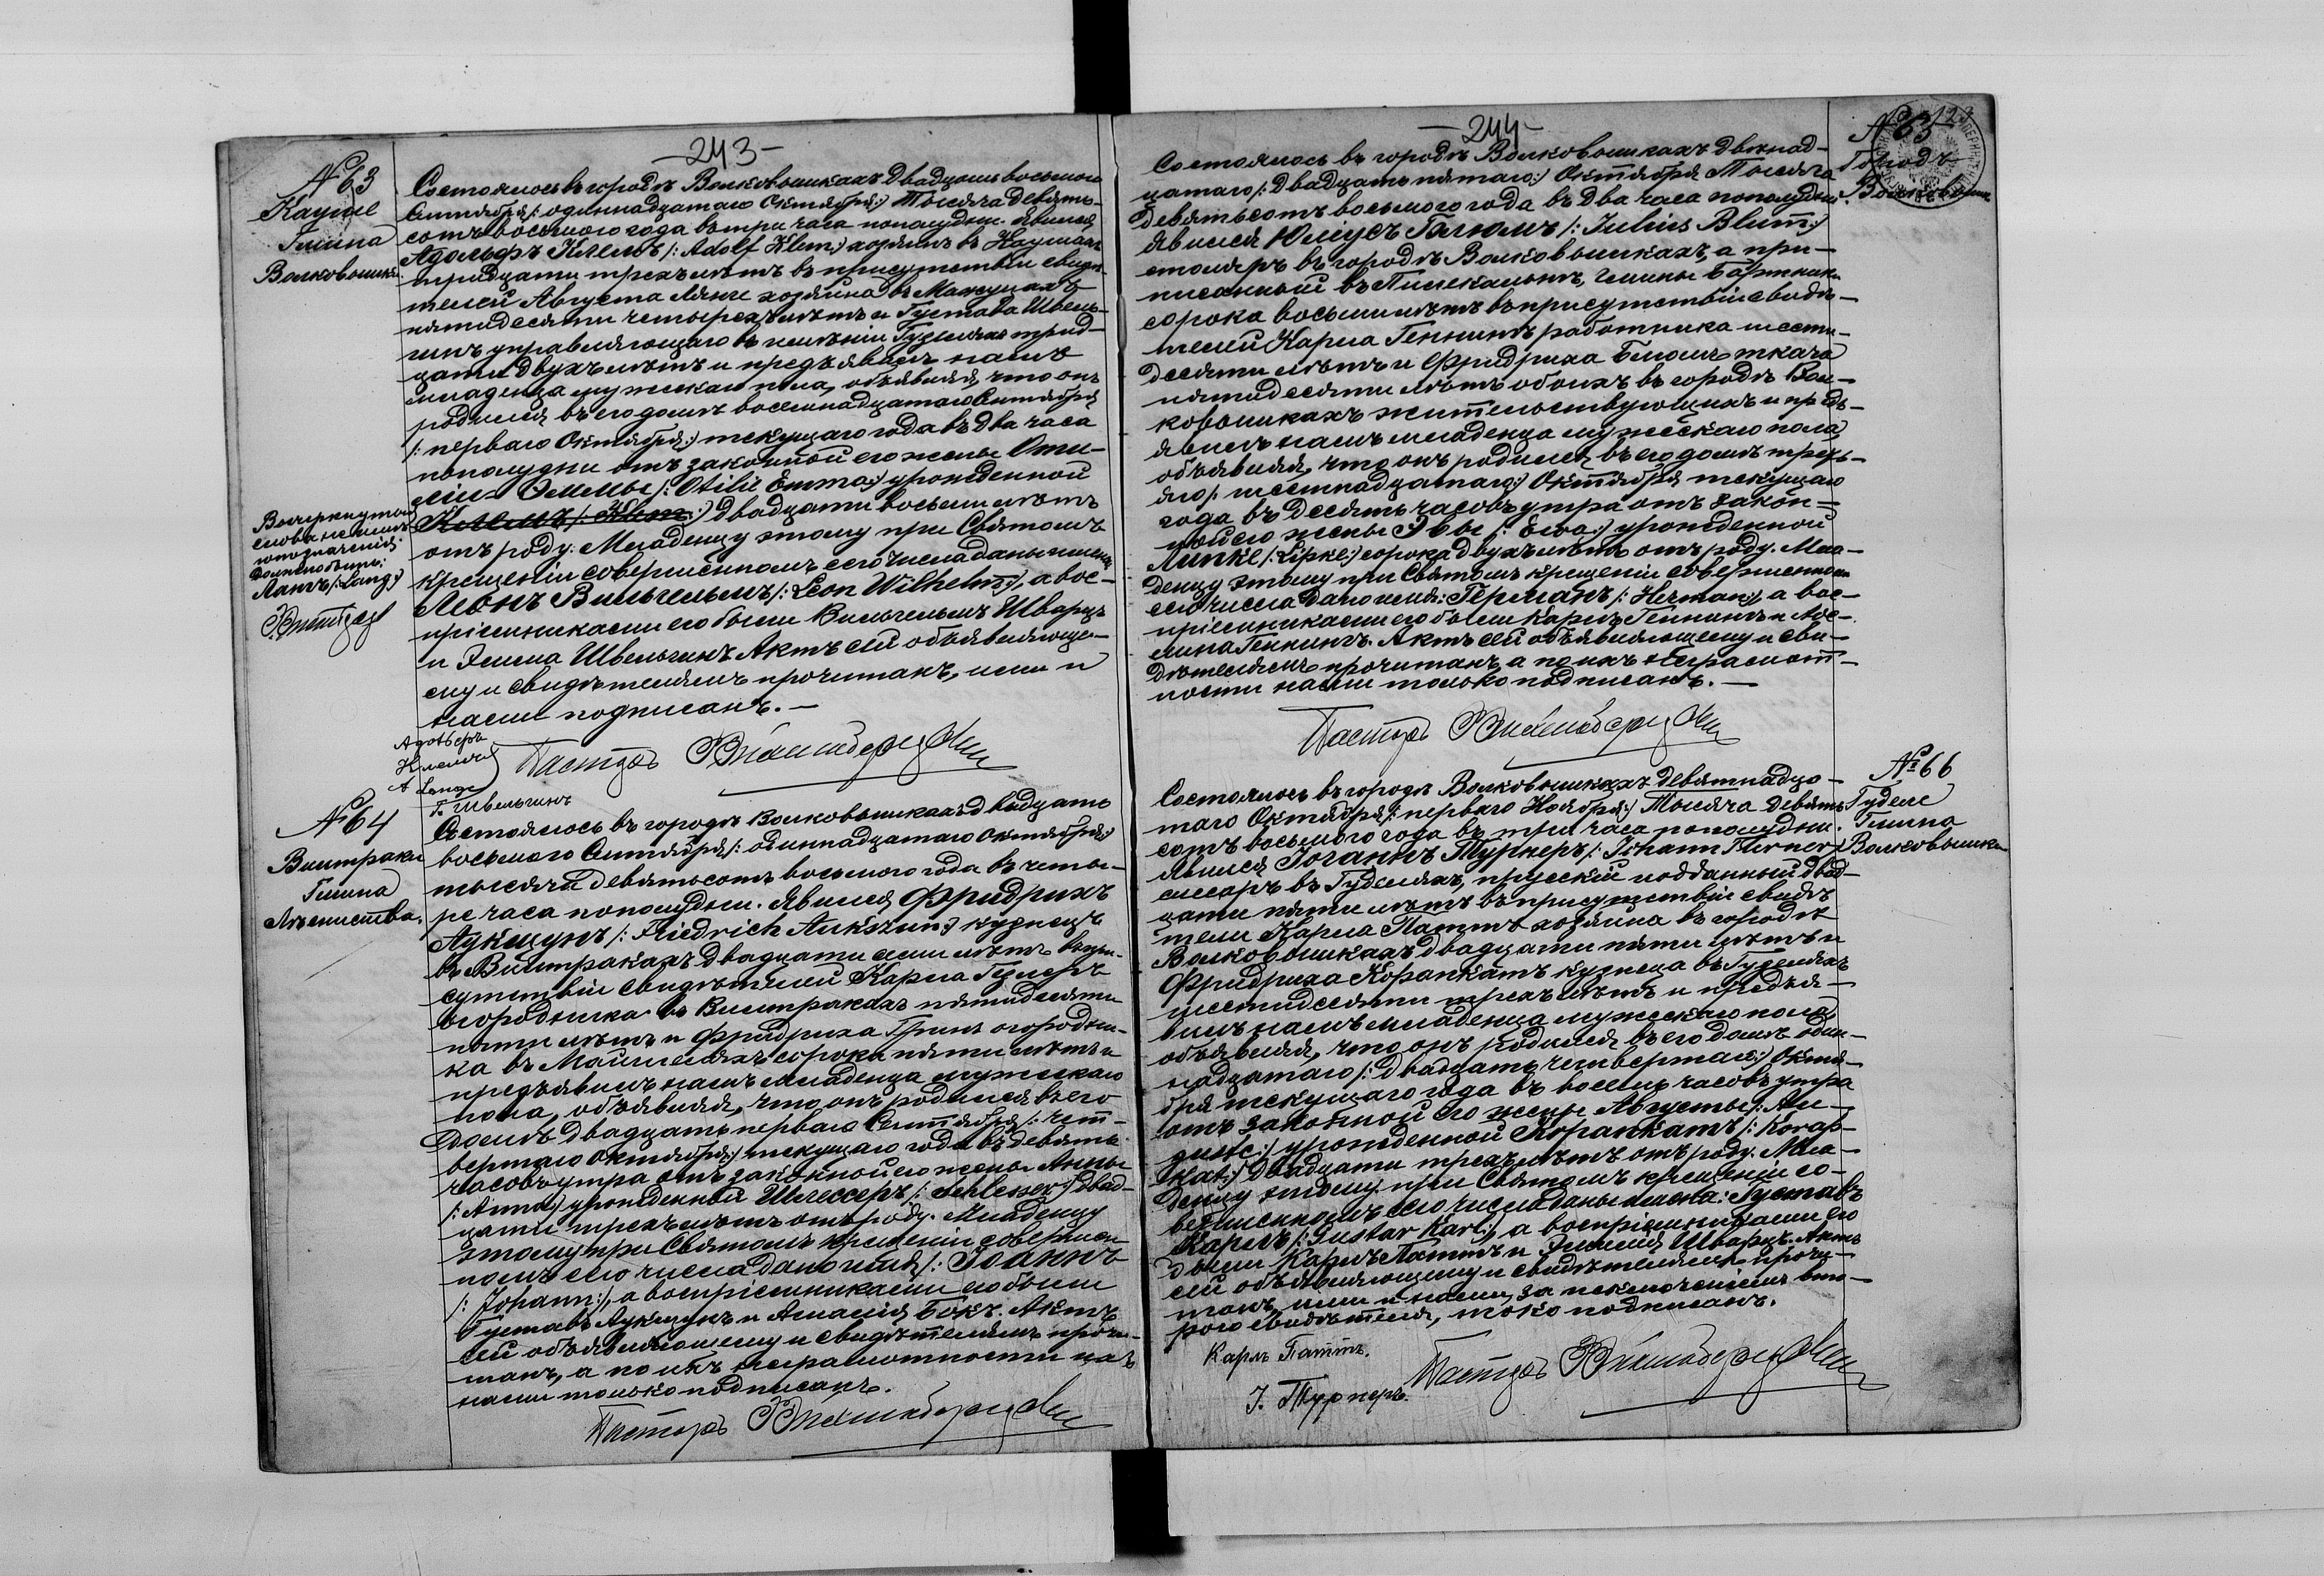 -243-
№63
Кауше
Гмина
Волковышки.
Состоялось въ городѣ Волковышкахъ двадцать восьмого
Сентября /: одиннадцатаго Октября:/ Тысяча девять-
сотъ восьмого года въ три часа пополудни. Явился
Адольфъ Клемъ /: Adolf Klem:/ хозяинъ въ Каушахъ
тридцати трехъ лѣтъ въ присутствіи свидѣ-
телей Августа Лянге хозяина въ
пятидесяти четырехъ лѣтъ и Густава Швель-
гинъ управляющаго въ имѣніи Гудели трид-
цати двухъ лѣтъ и предъявилъ намъ
младенца мужскаго пола, объявляя, что онъ
родился въ его домѣ восемнадцатаго Сентября
/: перваго Октября:/ текущаго года въ два часа
пополудни отъ законной его жены Оти-
ліи Эммы /: Otilie Emma:/ урожденной
Клемъ /: Klem:/ двадцати восьми лѣтъ
отъ роду. Младенцу этому при Святомъ
крещеніи совершенномъ сего числа даны имена
Леонъ Вильгельмъ /: Leon Wilhelm:/, а вос-
пріемниками его были Вильгельмъ Шварцъ
и Эмма Швельгинъ Актъ сей объявляюще-
му и свидѣтелямъ прочитанъ, ими и
нами подписанъ. —
Вычеркнутыя
слова
должно быть:
Лангъ /: Lang:/
Адольфъ
Клемъ
A Lange
Г. Швельгинъ
Пасторъ
№64
Виштраки
Гмина
Состоялось въ городѣ Волковышкахъ двадцать
восьмого Сентября /: одиннадцатаго Октября:/
тысяча девятьсотъ восьмого года въ четы-
ре часа пополудни. Явился Фридрихъ
Аукшунъ /: Friedrich Aukszun:/ кузнецъ
въ Виштракахъ двадцати семи лѣтъ въ при-
сутствіи свидѣтелей Карла
огородника въ Виштракахъ пятидесяти
пяти лѣтъ и Фридриха Гринъ огородни-
ка въ сорока пяти лѣтъ и
предъявилъ намъ младенца мужскаго
пола, объявляя, что онъ родился въ его
домѣ двадцать перваго Сентября /: чет-
вертаго Октября:/ текущаго года въ девять
часовъ утра отъ законной его жены Анны
/: Anna:/ урожденной Шлессеръ /: Schlesser:/ двад-
цати трехъ лѣтъ отъ роду. Младенцу
этому при Святомъ крещеніи совершен-
номъ сего числа дано имя /: Іоаннъ
/: Johann:/, а воспріемниками его были
Густавъ Аукшунъ и Амалія Бокъ. Актъ
сей объявляющему и свидѣтелямъ прочи-
танъ, а по ихъ неграмотности
нами только подписанъ.
Пасторъ
-244-
№65
Городъ
Волковышки
Состоялось въ городѣ Волковышкахъ двѣнад-
цатаго /: двадцать пятаго:/ Октября Тысяча
девятьсотъ восьмого года въ два часа пополудни.
Явился Юліусъ Блюмъ /: Julius Blum:/
столяръ въ городѣ Волковышкахъ, а при-
писанный въ Пилекальнѣ, гмины Бартники
сорока восьми лѣтъ въ присутствіи свидѣ-
телей Карла Геннигъ работника шести-
десяти лѣтъ и Фридриха Блюмъ ткача
пятидесяти лѣтъ обоихъ въ городѣ Вол-
ковышкахъ жительствующихъ и предъ-
явилъ намъ младенца мужескаго пола,
объявляя, что онъ родился въ его домѣ треть-
яго /: шестнадцатаго:/ Октября текущаго
года въ десять часовъ утра отъ закон-
ной его жены Эвы /: Ewa:/ урожденной
Липке /: Lipke:/ сорока двухъ лѣтъ отъ роду. Мла-
денцу этому при Святомъ крещеніи совершенномъ
сего числа дано имя: Германъ /: Herman:/, а вос-
пріемниками его были Карлъ Геннигъ и
Геннигъ. Актъ сей объявляющему и сви-
дѣтелямъ прочитанъ, а по ихъ неграмот-
ности нами только подписанъ. —
Пасторъ
№66
Гуделе
Гмина
Волковышки
Состоялось въ городѣ Волковышкахъ девятнадца-
таго Октября /: перваго Ноября:/ Тысяча девять-
сотъ восьмого года въ три часа пополудни.
Явился Іоганнъ Турнеръ /: Johann Turner:/
слесарь въ Гуделяхъ, прусскій подданный двад-
цати пяти лѣтъ въ присутствіи свидѣ-
тели Карла Паттъ хозяина въ городѣ
Волковышкахъ двадцати пяти лѣтъ и
Фридриха Корапкатъ кузнеца въ Гуделяхъ
шестидесяти трехъ лѣтъ и предъя-
вилъ намъ младенца мужескаго пола,
объявляя, что онъ родился въ его домѣ один-
надцатаго /: двадцать четвертаго:/ Октя-
бря текущаго года въ восемь часовъ утра
отъ законной его жены Августы /: Au-
guste:/ урожденной Корапкатъ /: Korap-
kat:/ двадцати трехъ лѣтъ отъ роду. Мла-
денцу этому при Святомъ крещеніи со-
вершенномъ сего числа даны имена: Густавъ
Карлъ /: Gustav Karl:/, а воспріемниками его
были Карлъ Паттъ и Эмилія Шварцъ. Актъ
сей объявляющему и свидѣтелямъ прочи-
танъ, ими и нами, за исключеніемъ вто-
рого свидѣтеля, токо подписанъ.
Карлъ Паттъ.
І. Турнеръ.
Пасторъ